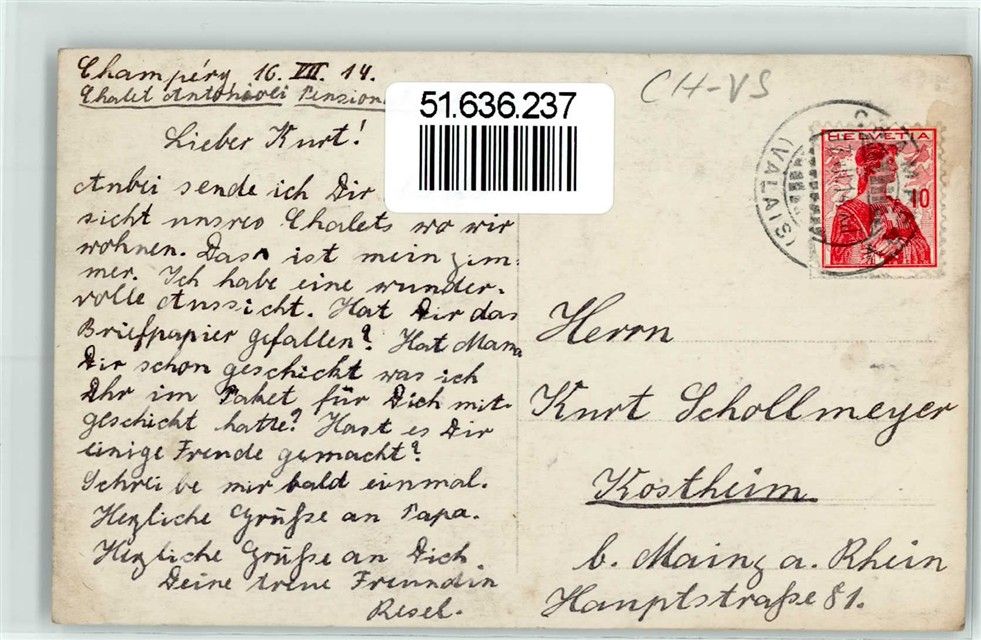 Champéry 16. VII. 14.
Chalet Antonioli Pension
CH-VS
51.636.237
Lieber Kurt!
Anbei sende ich Dir
sicht unsres Chalets wo wir
wohnen. Das ist mein Zim-
mer. Ich habe eine wunder-
volle Aussicht. Hat Dir das
Briefpapier gefallen? Hat Mama
Dir schon geschickt was ich
Ihr im Paket für Dich mit-
geschickt hatte? Hast es Dir
einige Freude gemacht?
Schreibe mir bald einmal.
Herzliche Grüße an Papa.
Herzliche Grüße an Dich
Deine treue Freundin
Resel.
HELVETIA
10
(VALAIS)
Herrn
Kurt Schollmeyer
Kostheim
b. Mainz a. Rhein
Hauptstraße 81.